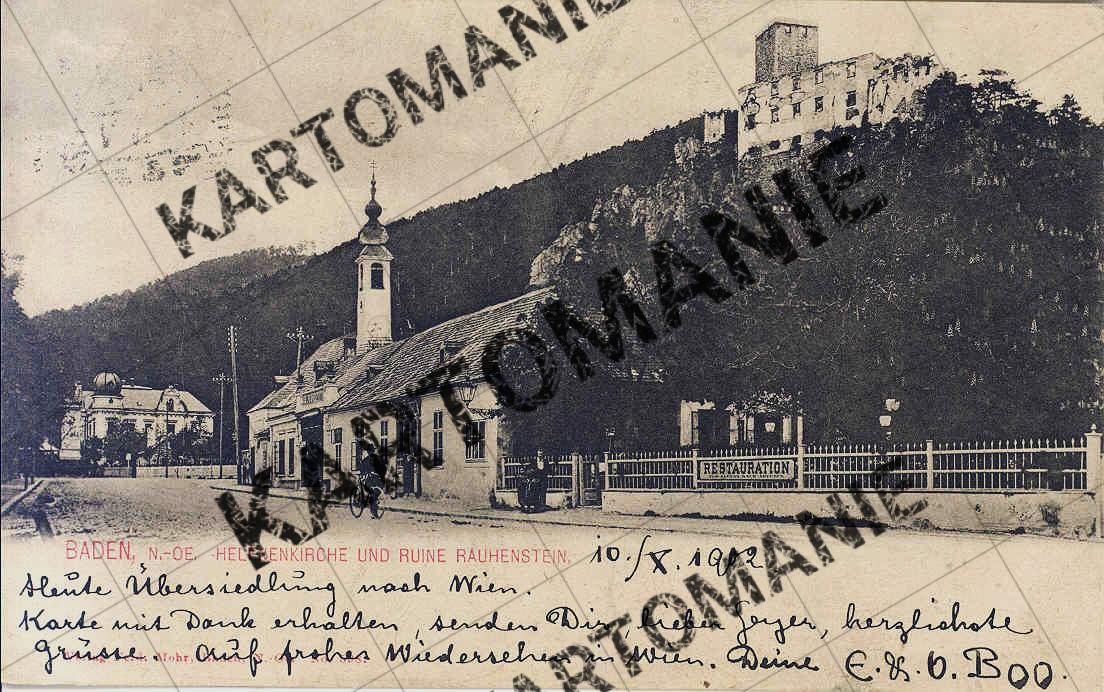 KARTOMANIE
KARTOMANIE
KARTOMANIE
KARTOMANIE
RESTAURATION
BADEN, N.-OE. HELENENKIRCHE UND RUINE RAUHENSTEIN.
10./X. 1902
Heute Übersiedlung nach Wien.
Karte mit Dank erhalten, senden Dir, lieber Geyer, herzlichste
Grüsse. Auf frohes Wiedersehen in Wien. Deine E. & O. Boo.
Mohr,